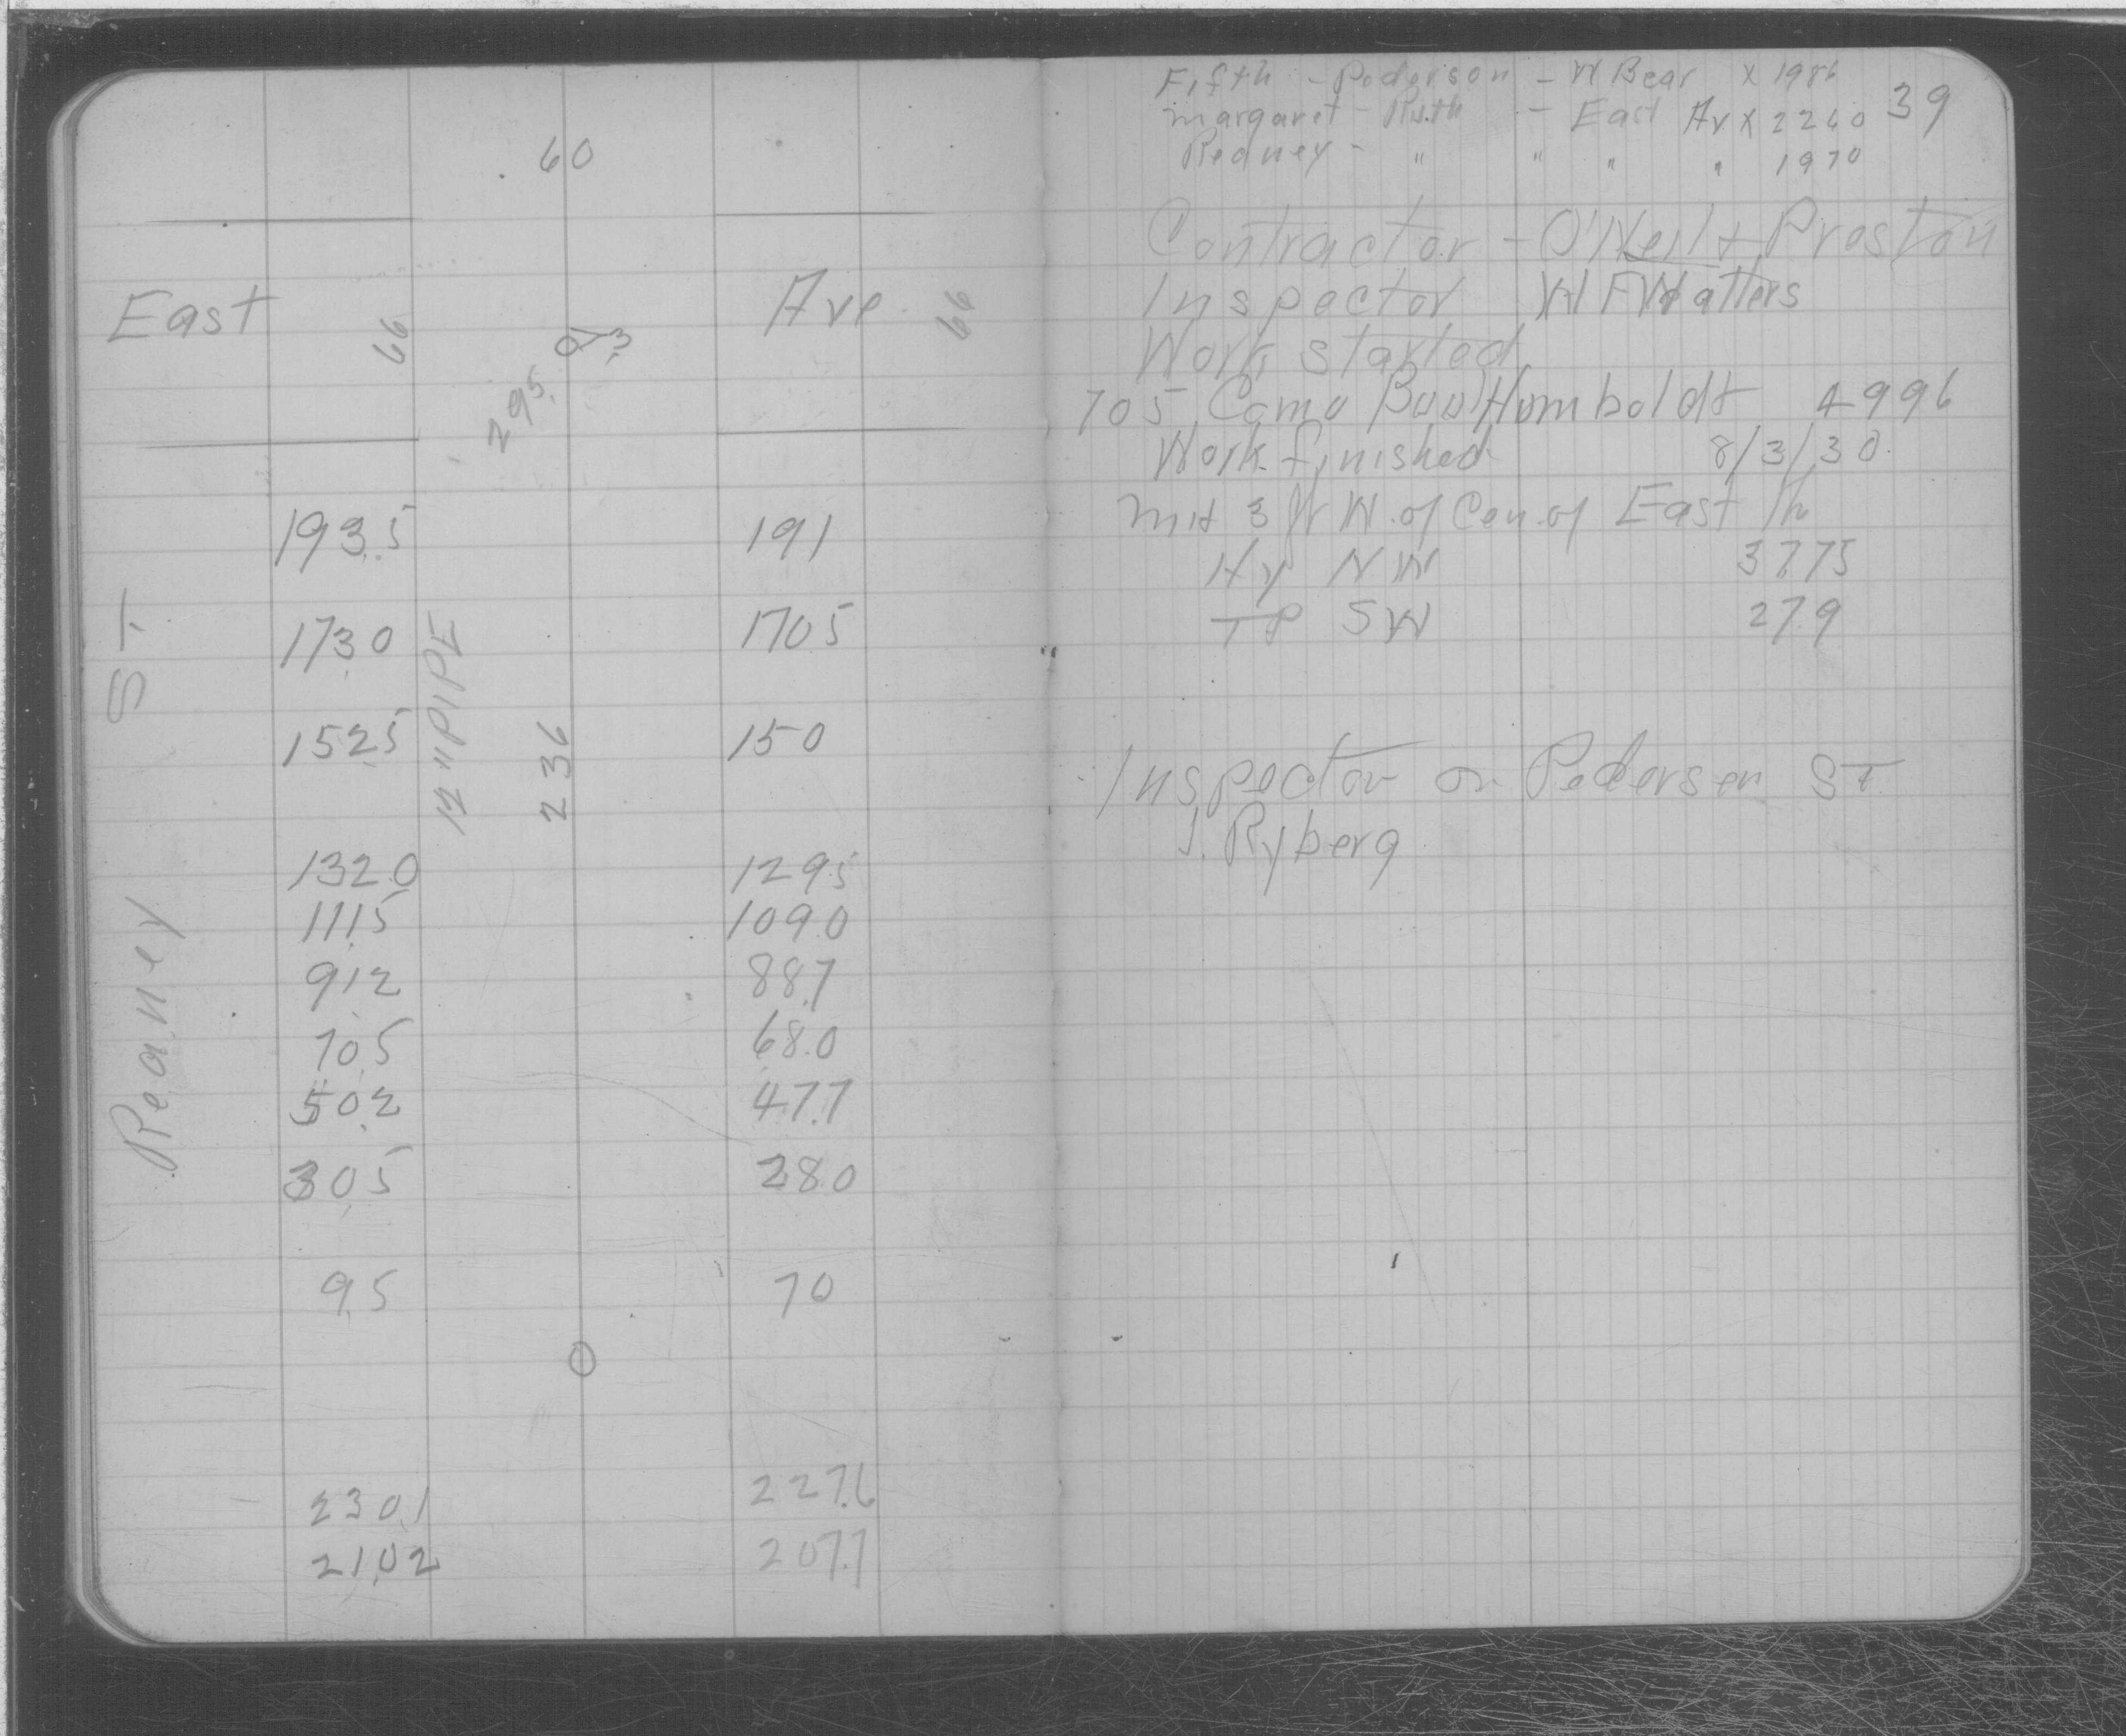 60
East Ave
66
66
3
295.
193.5 191
1730 1705
12" PIPE
236
1525 150
1320 1295
111.5 1090
91.2 88.7
70.5 68.0
50.2 47.7
30.5 28.0
9.5 70
230.1 227.6
210.2 207.7
Reaney ST.
39
Fifth - Pederson - W Bear X 1986
Margaret - Ruth - East Av X 2260
Reaney - " " " " 1970
Contractor - O'Neil + Preston
Inspector W F Watters
Work started
705 Como Boul Humboldt 4996
Work finished 8/3/30
MH 3 W W. of Cen. of East
Hy NW 37.75
TP SW 27.9
Inspector on Pedersen ST
J. Ryberg